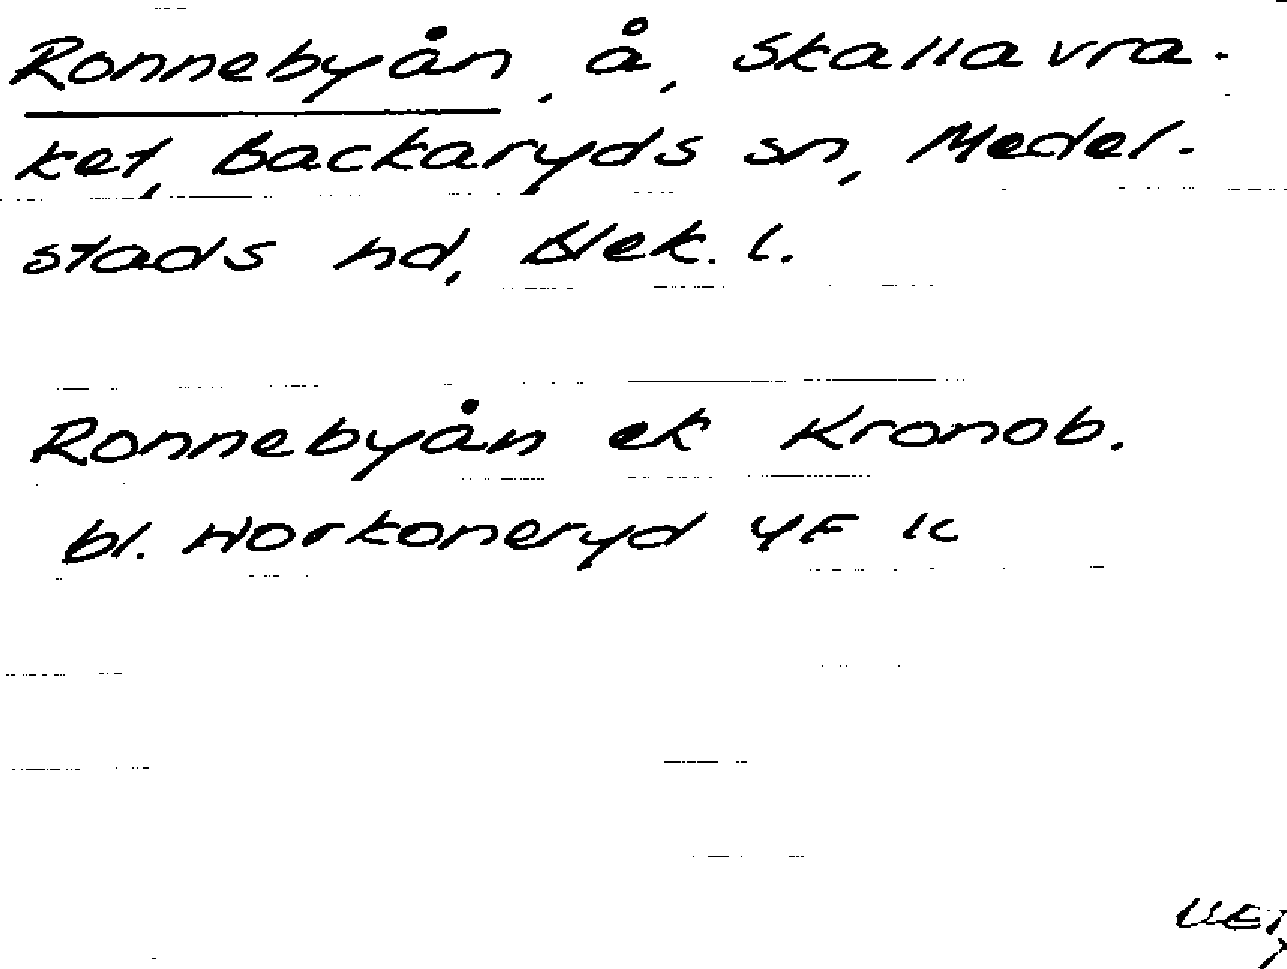 Ronnebyån, å, Skallavra-
ket, Backaryds sn, Medel-
stads hd, Blek. l.
Ronnebyån ek Kronob.
bl. Norkoneryd 4F